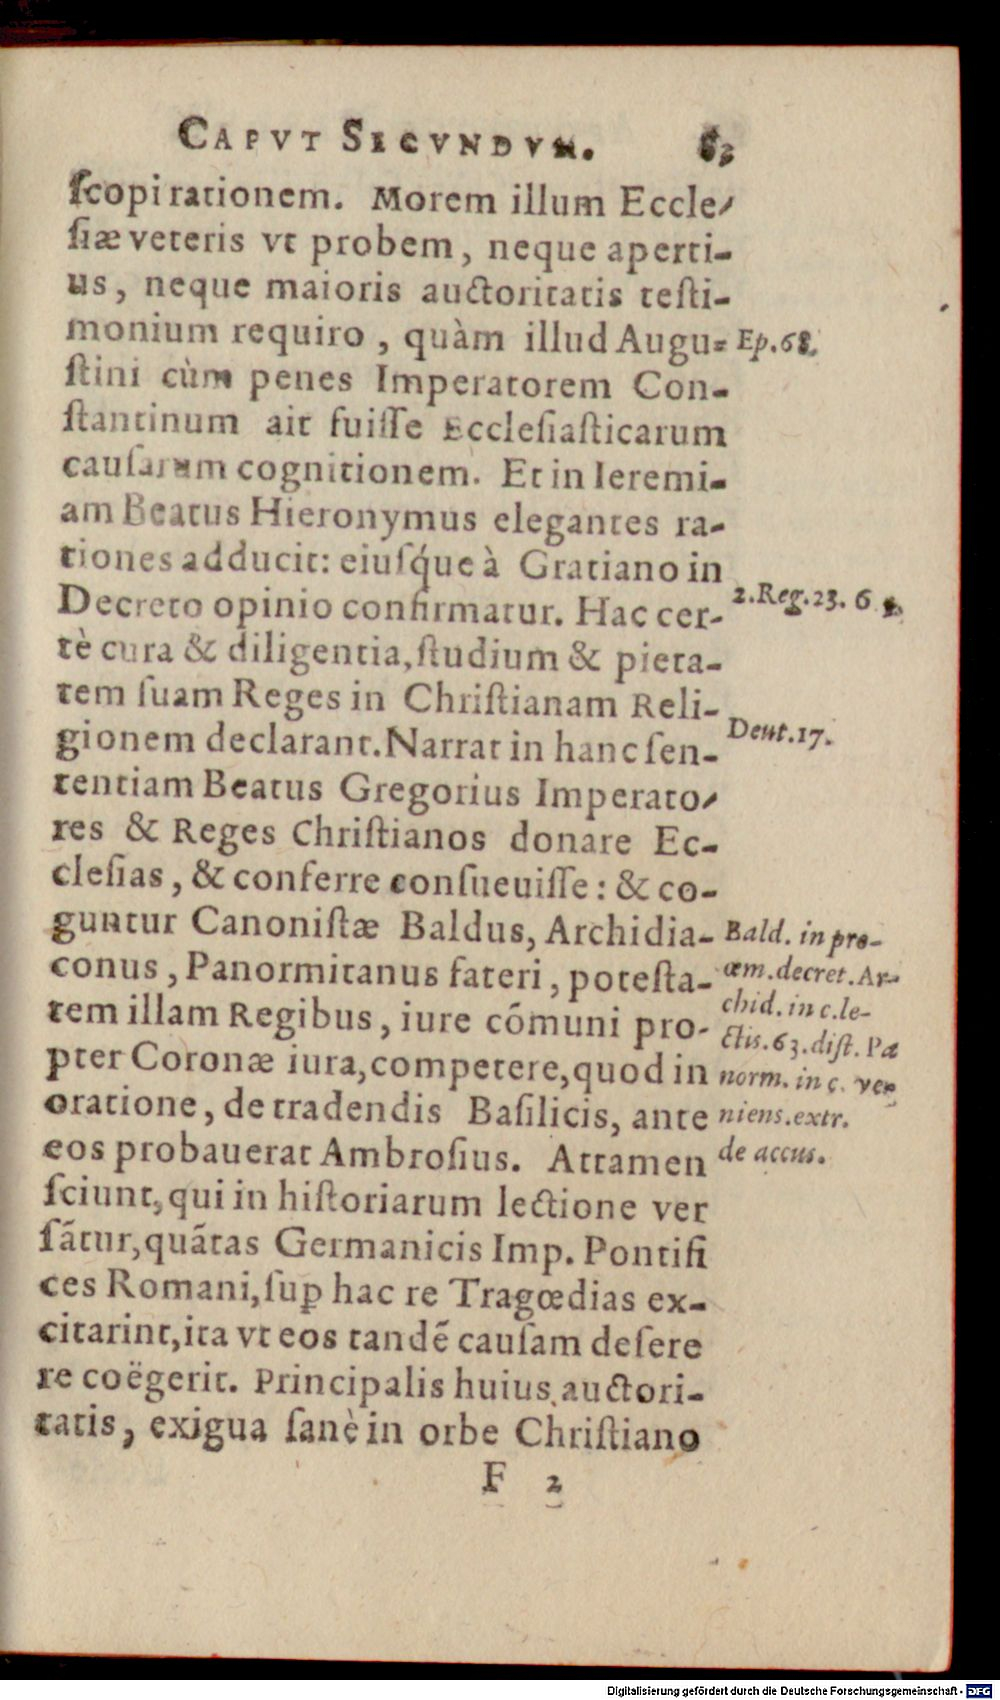 CAPVT SECVNDVM. 83
ſcopi rationem. Morem illum Eccle-
ſiæ veteris vt probem, neque aperti-
us, neque maioris auctoritatis teſti-
monium requiro, quàm illud Augu-
ſtini cùm penes Imperatorem Con-
ſtantinum ait fuiſſe Eccleſiaſticarum
cauſarum cognitionem. Et in Ieremi-
am Beatus Hieronymus elegantes ra-
tiones adducit: eiuſq́ue à Gratiano in
Decreto opinio confirmatur. Hac cer-
tè cura & diligentia, ſtudium & pieta-
tem ſuam Reges in Chriſtianam Reli-
gionem declarant. Narrat in hanc ſen-
tentiam Beatus Gregorius Imperato-
res & Reges Chriſtianos donare Ec-
cleſias, & conferre conſueuiſſe: & co-
guntur Canoniſtæ Baldus, Archidia-
conus, Panormitanus fateri, poteſta-
tem illam Regibus, iure cõmuni pro-
pter Coronæ iura, competere, quod in
oratione, de tradendis Baſilicis, ante
eos probauerat Ambroſius. Attamen
ſciunt, qui in hiſtoriarum lectione ver
ſãtur, quãtas Germanicis Imp. Pontifi
ces Romani, ſuꝑ hac re Tragœdias ex-
citarint, ita vt eos tandẽ cauſam deſere
re coëgerit. Principalis huius auctori-
tatis, exigua ſanè in orbe Chriſtiano
F 2
Ep. 68.
2. Reg. 23. 6
Deut. 17.
Bald. in pro-
œm. decret. Ar-
chid. in c. le-
ctis. 63. diſt. Pa
norm. in c. ve
niens. extr.
de accus.
Digitalisierung gefördert durch die Deutsche Forschungsgemeinschaft - DFG